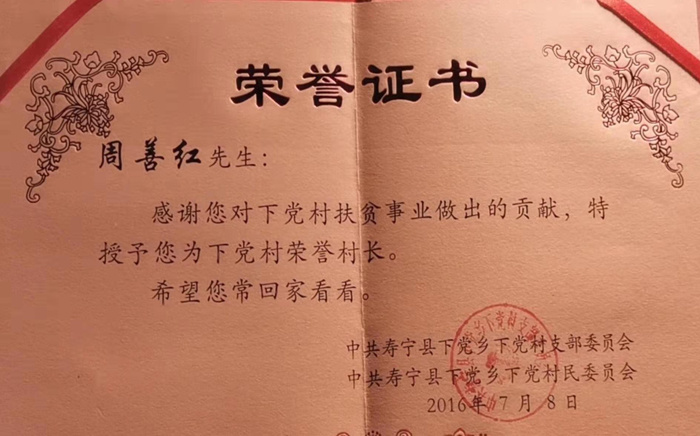 荣誉证书
周善红先生：
感谢您对下党村扶贫事业做出的贡献，特
授予您为下党村荣誉村长。
希望您常回家看看。
中共寿宁县下党乡下党村支部委员会
中共寿宁县下党乡下党村民委员会
2016年7月8日